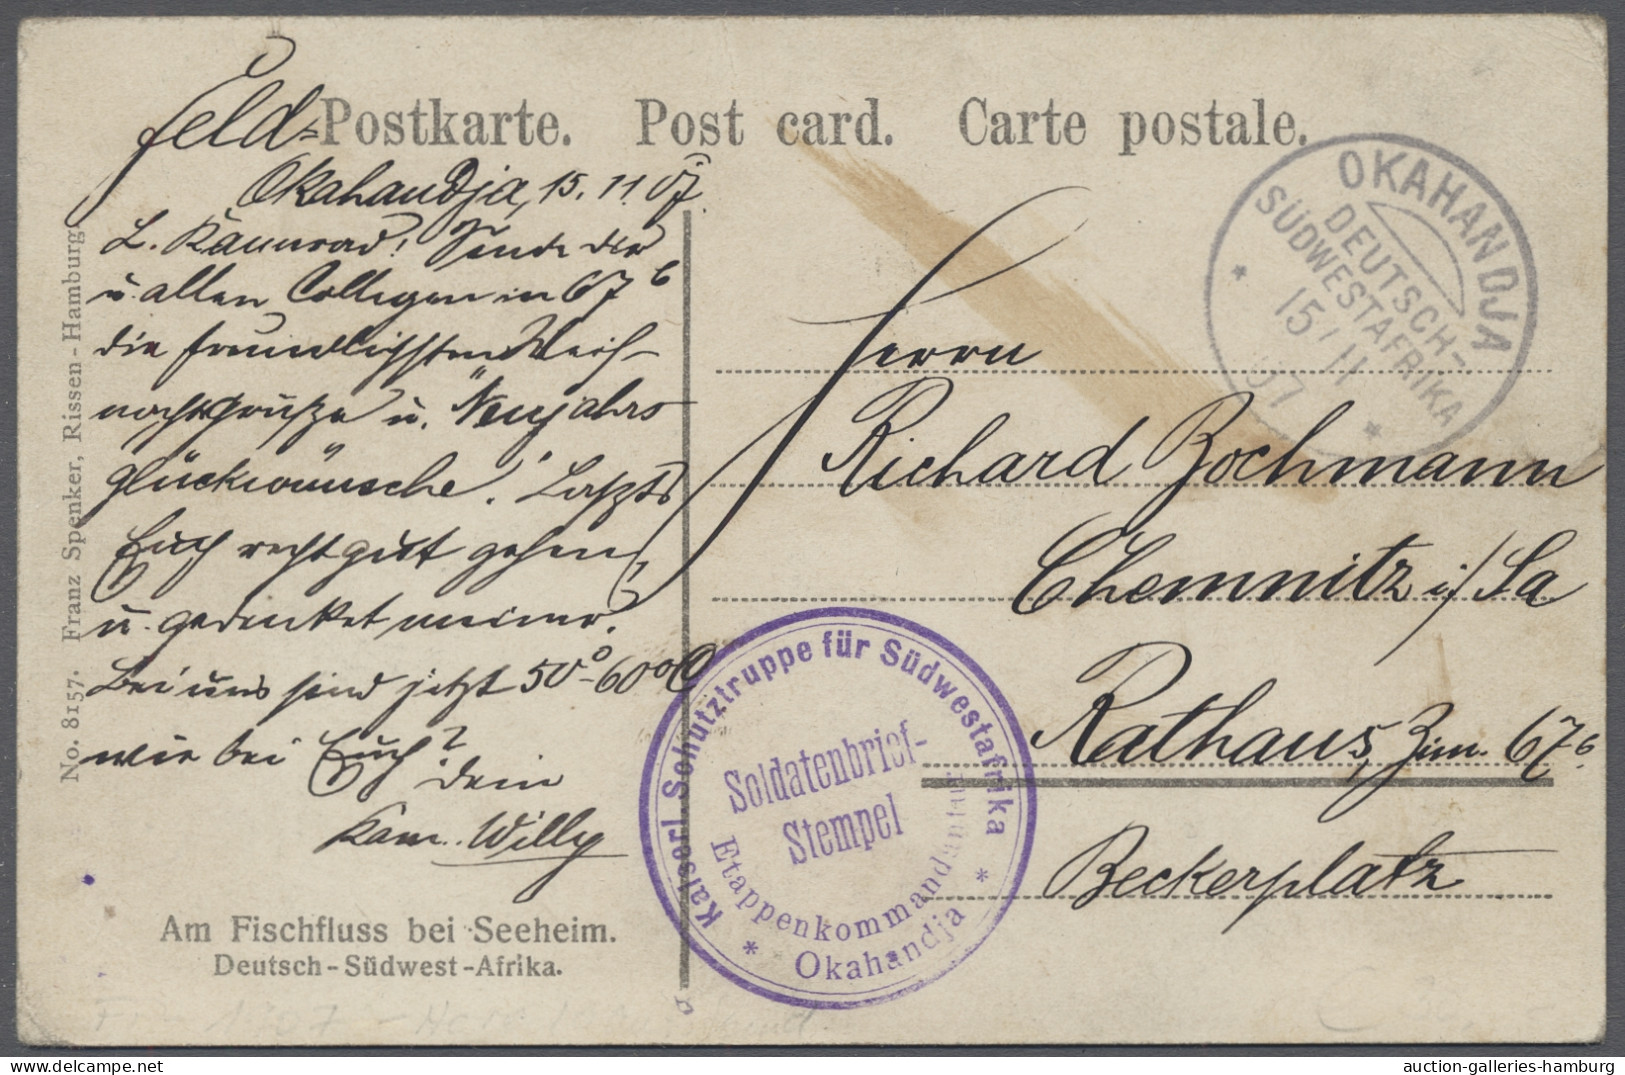 Feld-Postkarte. Post card. Carte postale.
Okahandja, 15.11.07.
L. Kamerad! Sende dir
u. allen Collegen in 67b
die freundlichsten Weih-
nachtsgrüße u. Neujahrs
glückwünsche. Laßt's
Euch recht gut gehen,
u. gedenket meiner.
Bei uns sind jetzt 50°-60°C
wie bei Euch?
Dein
Kam. Willy
Am Fischfluss bei Seeheim.
Deutsch-Südwest-Afrika.
No. 8157. Franz Spenker, Rissen-Hamburg.
OKAHANDJA
DEUTSCH-
SÜDWESTAFRIKA
15/11
07
Herrn
Richard Zochmann
Chemnitz i/Sa
Rathaus, Zim. 67b
Beckerplatz
Kaiserl. Schutztruppe für Südwestafrika
Soldatenbrief-
Stempel
Etappenkommandantur
* Okahandja *
auction-galleries-hamburg